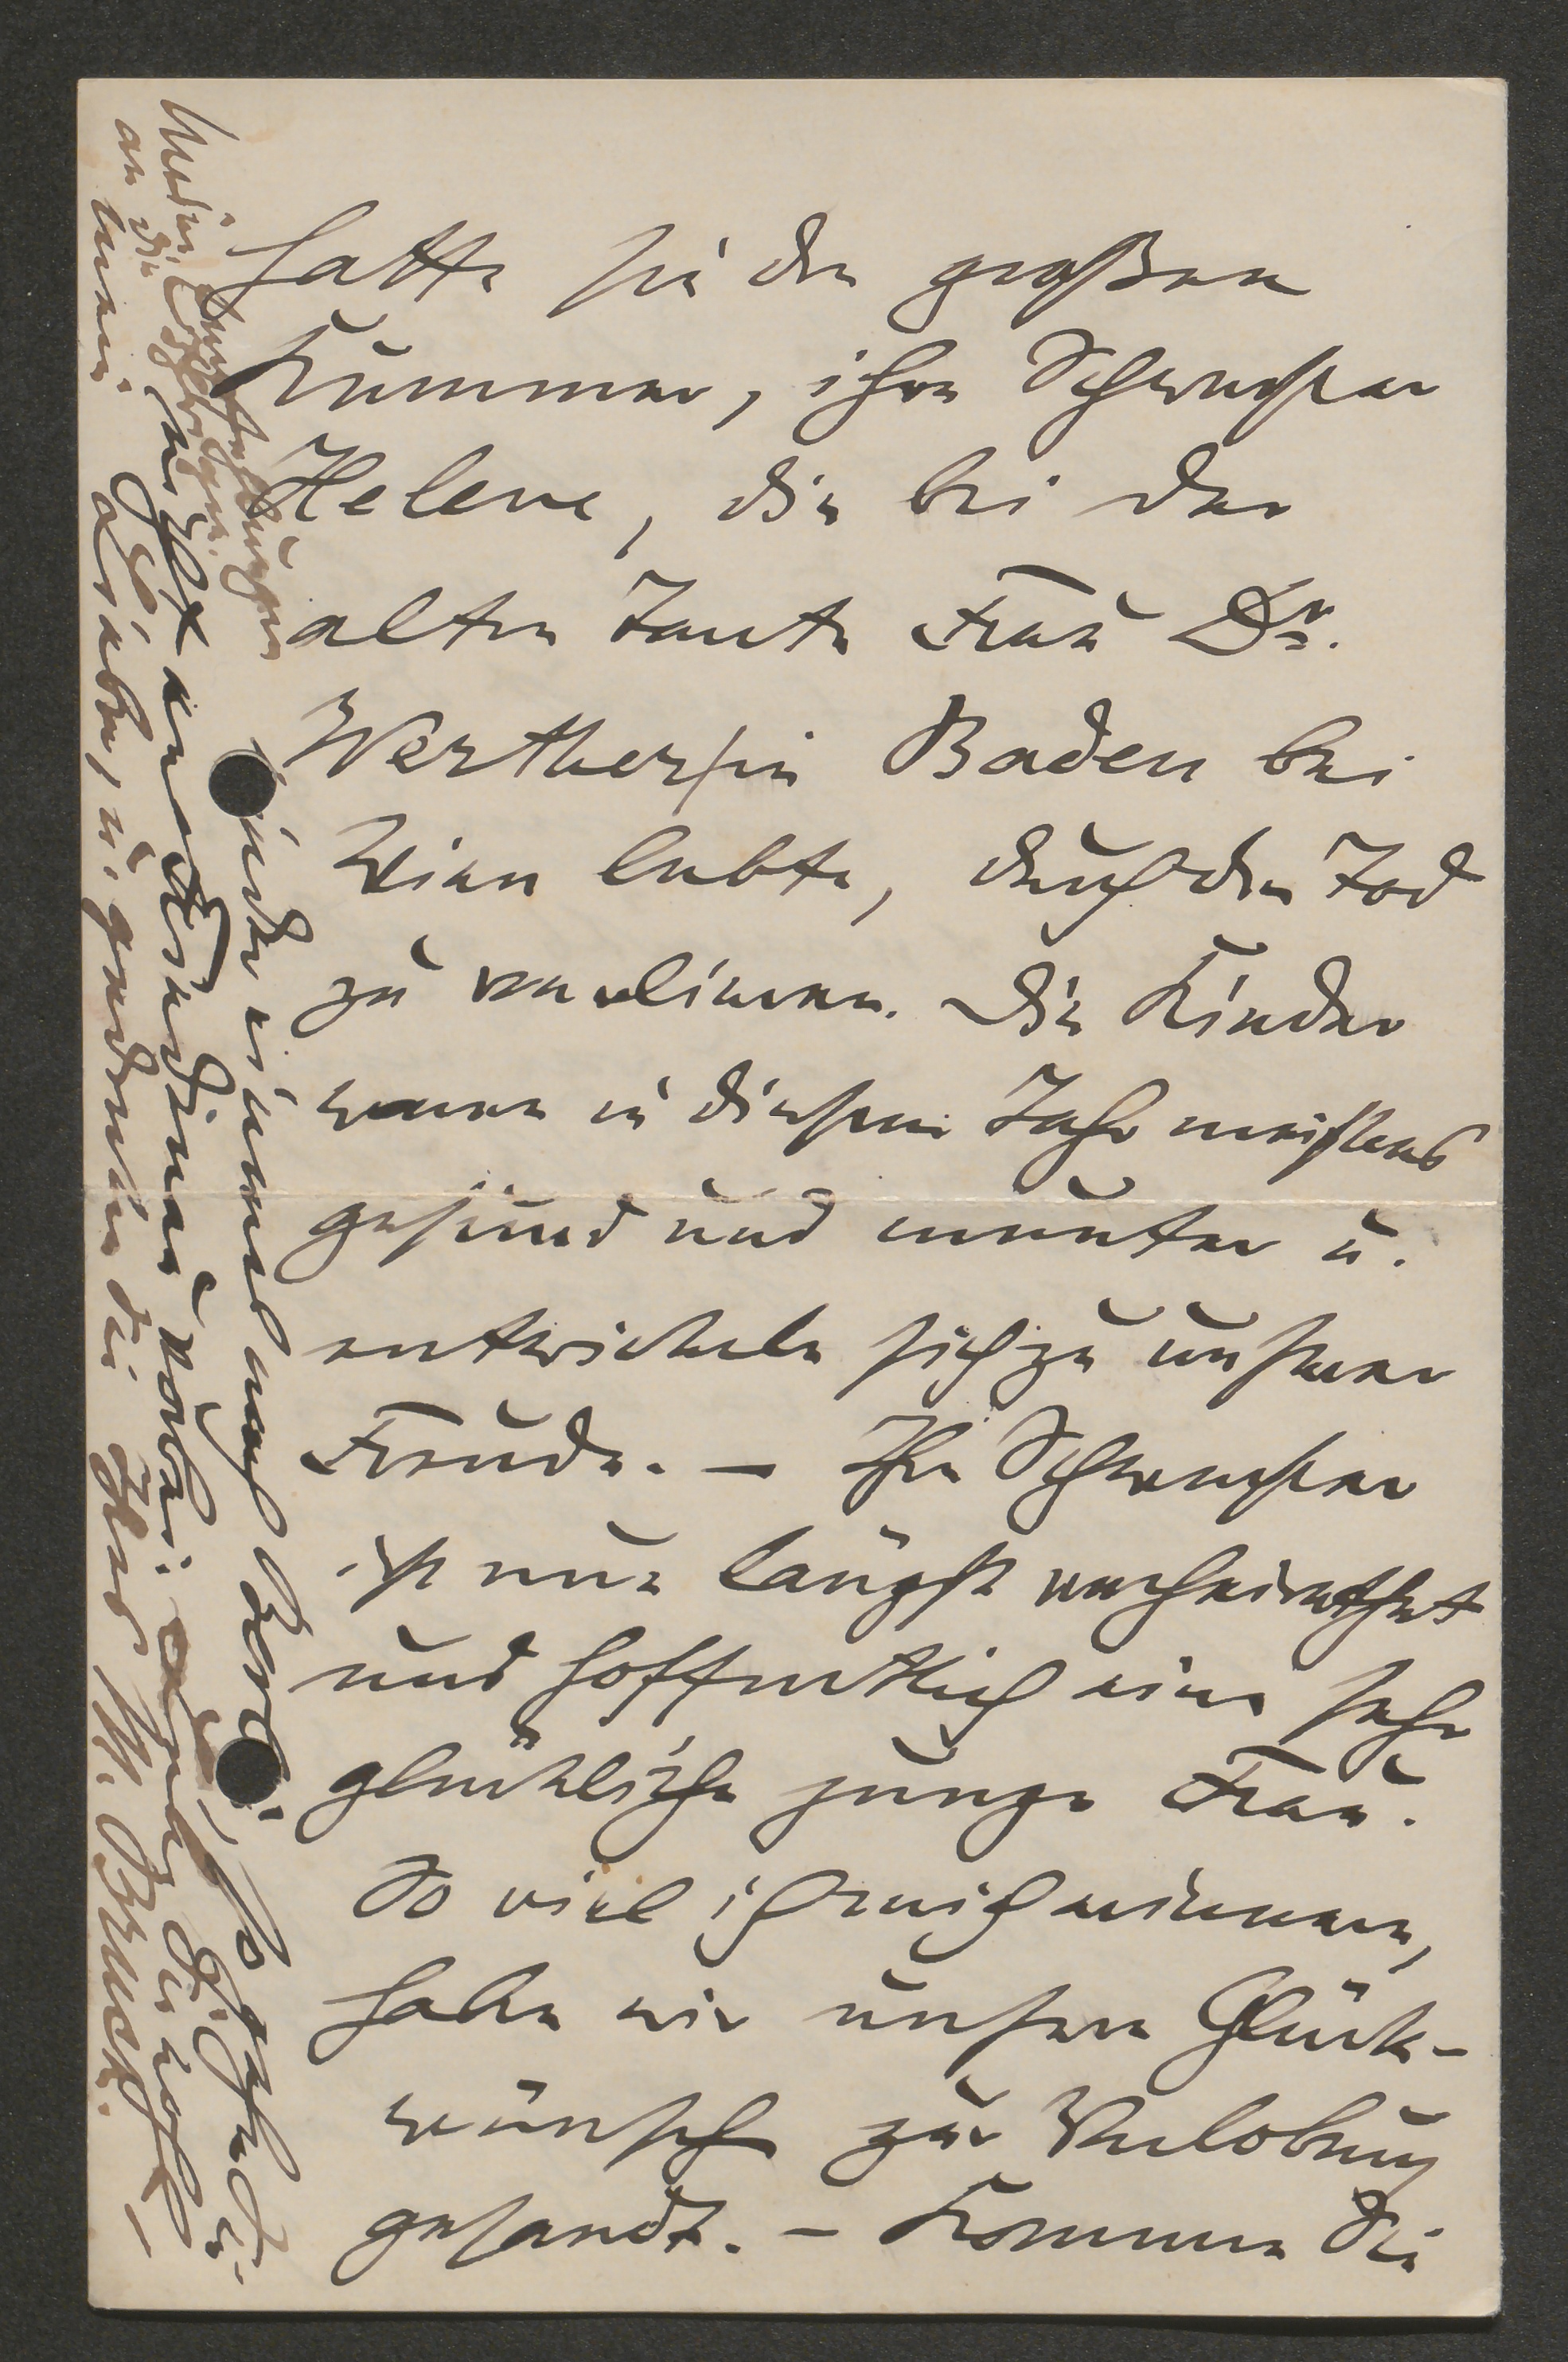 hatte sie den großen
Kummer, ihre Schwester
Helene, die bei der
alten Tante Frau Dr.
Werther in Baden bei
Wien lebte, durch den Tod
zu verlieren. Die Kinder
waren in diesem Jahr meistens
gesund und munter u.
entwickeln sich zu unserer
Freude. – Ihre Schwester
ist nun längst verheirathet
und hoffentlich eine sehr
glückliche junge Frau.
So viel ich mich erinnere,
habe wir unsere Glück-
wünsche zur Verlobung
gesandt. – Kommen Sie
wieder einmal nach
so gehen Sie
nicht an
vorbei
u. gedenken Sie Ihres M. Bruck.
Meine Empfehlungen
an die Ihrigen.